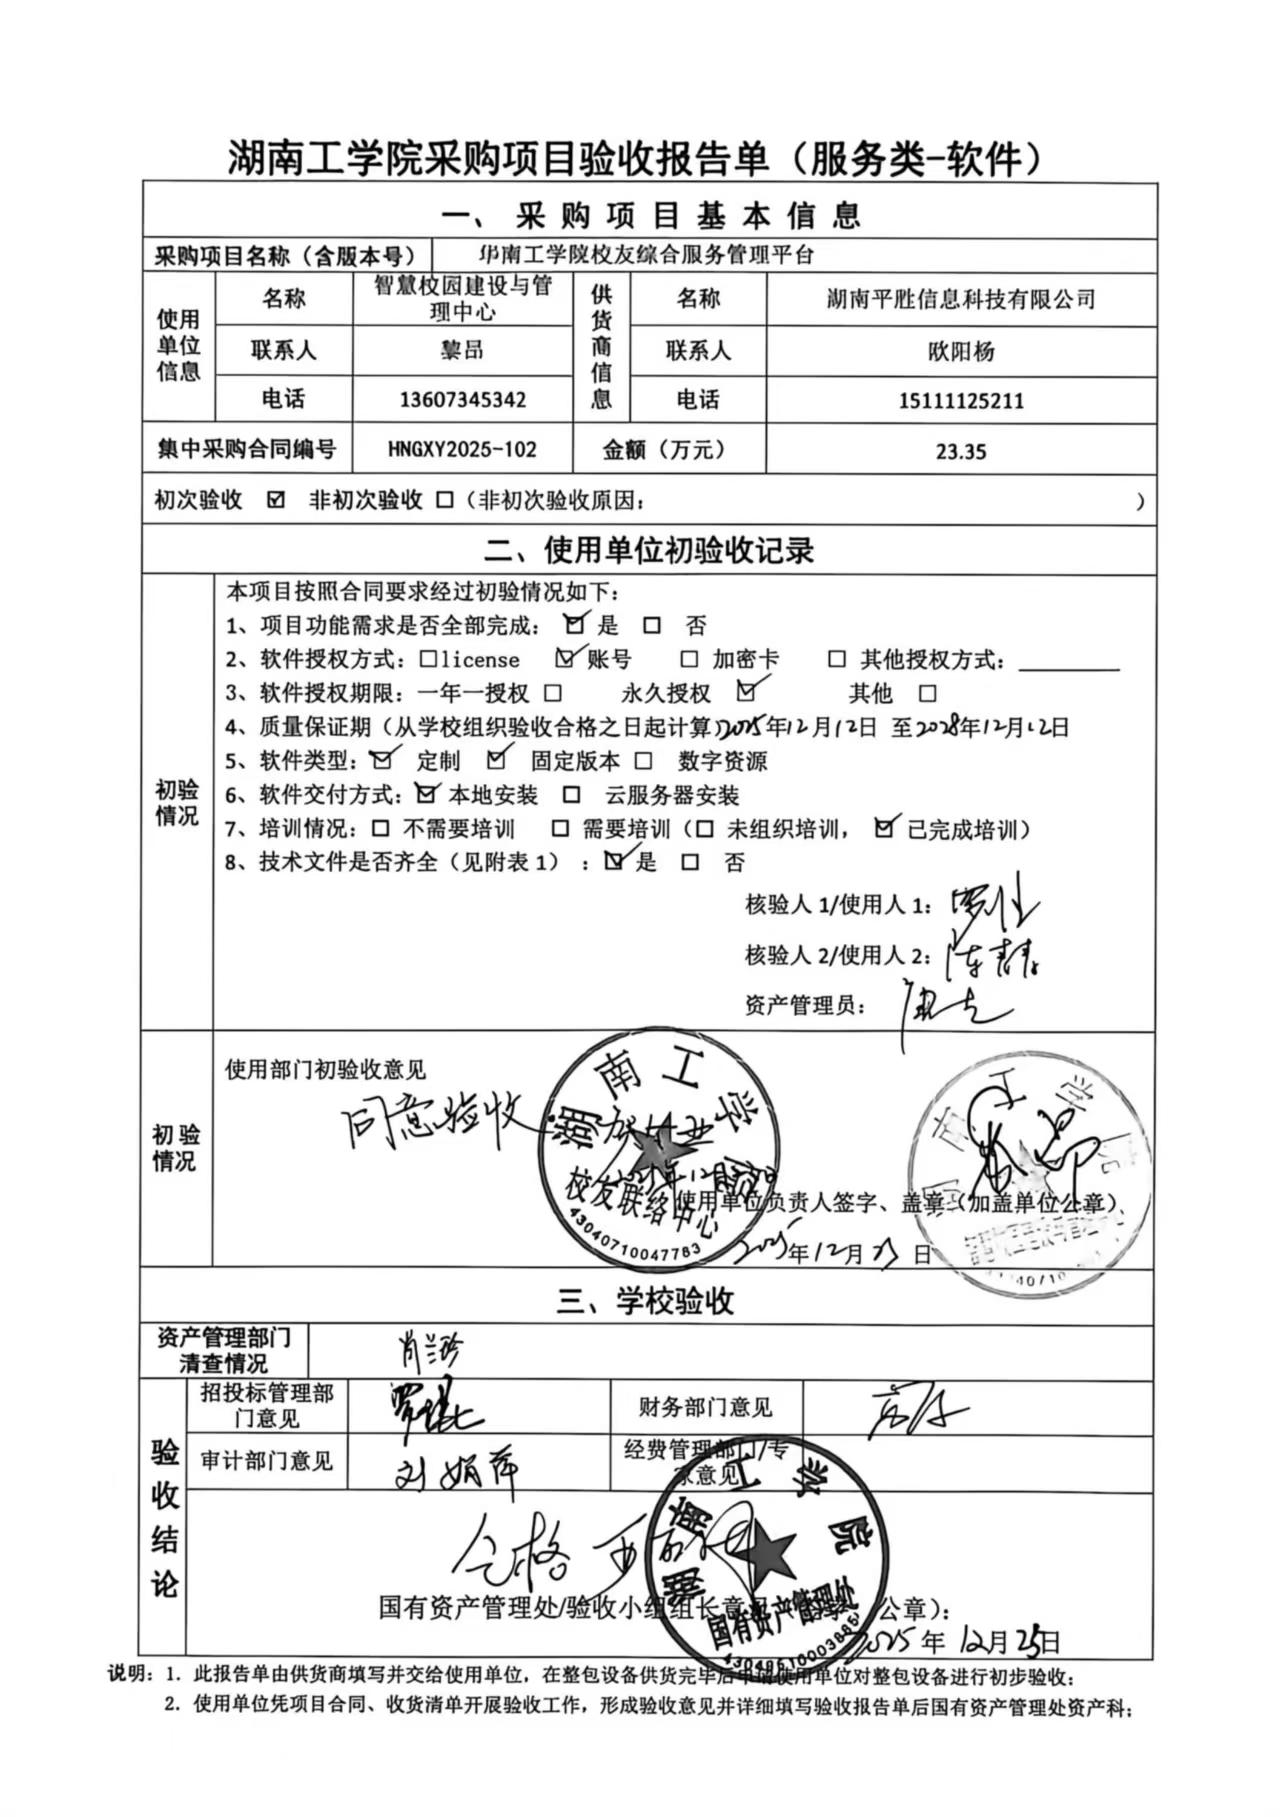 湖南工学院采购项目验收报告单（服务类-软件）
一、采购项目基本信息
采购项目名称（含版本号） 华南工学院校友综合服务管理平台
使用单位信息 名称 智慧校园建设与管理中心 供货商信息 名称 湖南平胜信息科技有限公司
联系人 黎昂 联系人 欧阳杨
电话 13607345342 电话 15111125211
集中采购合同编号 HNGXY2025-102 金额（万元） 23.35
初次验收 ☑ 非初次验收 □（非初次验收原因： ）
二、使用单位初验收记录
初验情况
本项目按照合同要求经过初验情况如下：
1、项目功能需求是否全部完成：☑ 是 □ 否
2、软件授权方式：□license ☑账号 □ 加密卡 □ 其他授权方式：
3、软件授权期限：一年一授权 □ 永久授权 ☑ 其他 □
4、质量保证期（从学校组织验收合格之日起计算）2025年12月12日 至2028年12月12日
5、软件类型：☑ 定制 ☑ 固定版本 □ 数字资源
6、软件交付方式：☑ 本地安装 □ 云服务器安装
7、培训情况：□ 不需要培训 □ 需要培训（□ 未组织培训，☑ 已完成培训）
8、技术文件是否齐全（见附表1）：☑ 是 □ 否
核验人1/使用人1：
核验人2/使用人2：陈青青
资产管理员：
初验情况
使用部门初验收意见
同意验收
湖南工学院
校友联络中心
43040710047783
湖南工学院
使用单位负责人签字、盖章（加盖单位公章）
2025年12月23日
三、学校验收
资产管理部门清查情况 肖兰珍
验收结论
招投标管理部门意见 财务部门意见
审计部门意见 刘娟萍 经费管理部门/专家意见
合格
湖南工学院
国有资产管理处
国有资产管理处/验收小组组长意见 公章）：
2025年12月25日
说明：1. 此报告单由供货商填写并交给使用单位，在整包设备供货完毕后申请使用单位对整包设备进行初步验收；
2. 使用单位凭项目合同、收货清单开展验收工作，形成验收意见并详细填写验收报告单后国有资产管理处资产科；